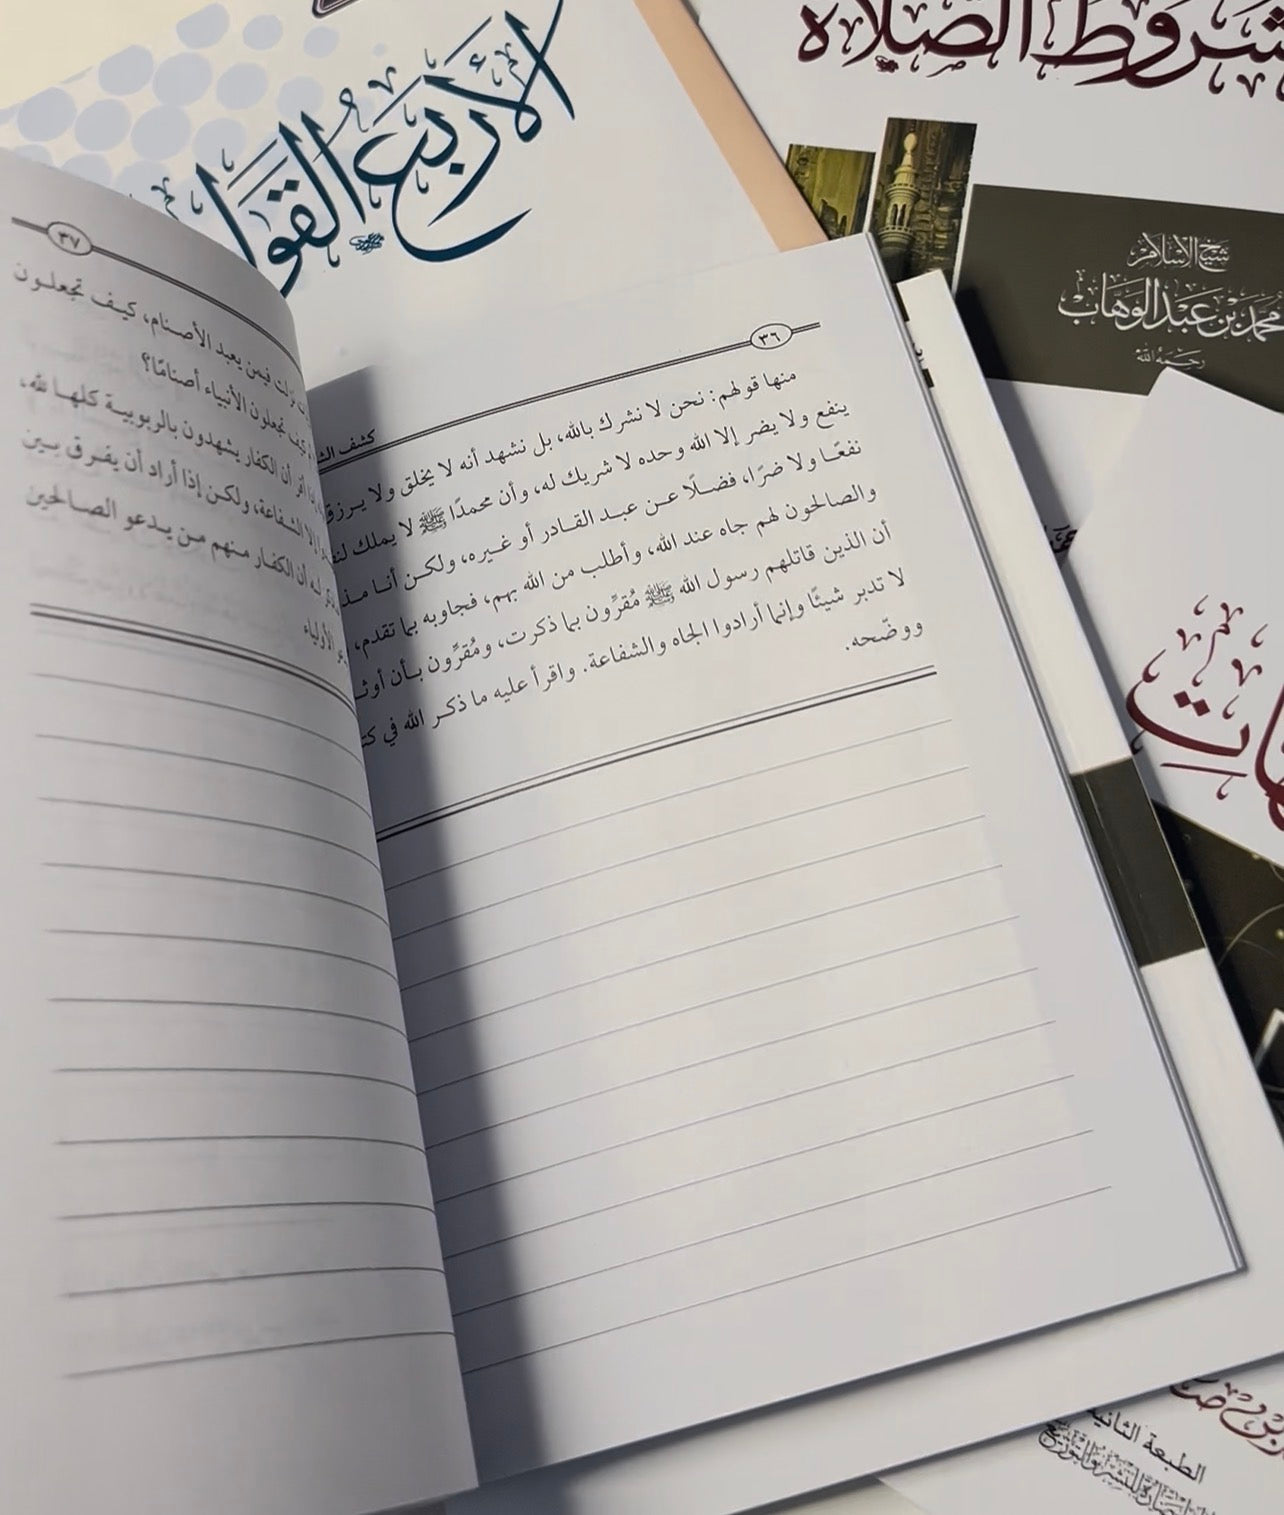 الأربع القوا
شروط الصلاة
شيخ الإسلام
محمد بن عبد الوهاب
رحمه الله
٣٦
كشف الش
منها قولهم: نحن لا نشرك بالله، بل نشهد أنه لا يخلق ولا يرزق
ينفع ولا يضر إلا الله وحده لا شريك له، وأن محمدًا ﷺ لا يملك لنف
نفعًا ولا ضرًا، فضلًا عن عبد القادر أو غيره، ولكن أنا مذ
والصالحون لهم جاه عند الله، وأطلب من الله بهم، فجاوبه بما تقدم،
أن الذين قاتلهم رسول الله ﷺ مُقرِّون بما ذكرت، ومُقرِّون بأن أوث
لا تدبر شيئًا وإنما أرادوا الجاه والشفاعة. واقرأ عليه ما ذكر الله في كتا
ووضّحه.
٣٧
نزلت فيمن يعبد الأصنام، كيف تجعلون
كيف تجعلون الأنبياء أصنامًا؟
أقر أن الكفار يشهدون بالربوبية كلها لله،
إلا الشفاعة، ولكن إذا أراد أن يفرق بين
له أن الكفار منهم من يدعو الصالحين
الأولياء
الطبعة الثانية